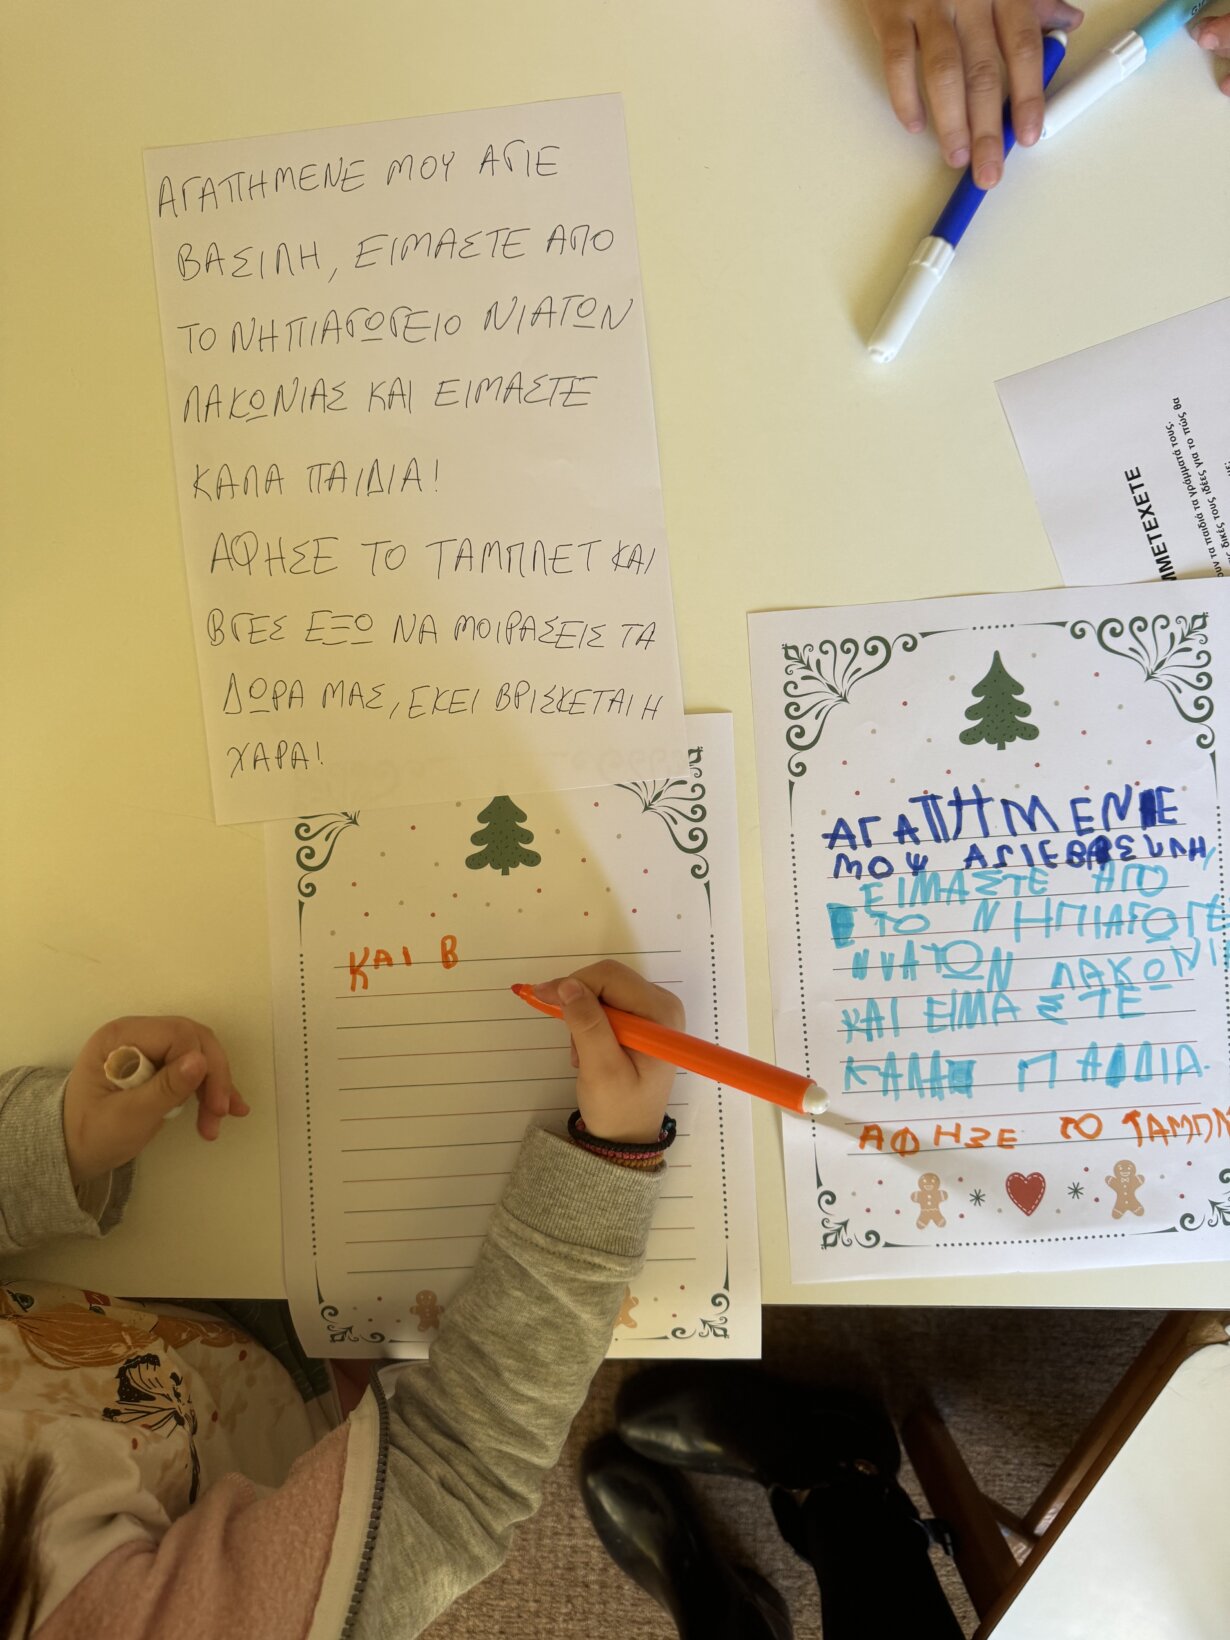 ΑΓΑΠΗΜΕΝΕ ΜΟΥ ΑΓΙΕ
ΒΑΣΙΛΗ, ΕΙΜΑΣΤΕ ΑΠΟ
ΤΟ ΝΗΠΙΑΓΩΓΕΙΟ ΝΙΑΤΩΝ
ΛΑΚΩΝΙΑΣ ΚΑΙ ΕΙΜΑΣΤΕ
ΚΑΛΑ ΠΑΙΔΙΑ!
ΑΦΗΣΕ ΤΟ ΤΑΜΠΛΕΤ ΚΑΙ
ΒΓΕΣ ΕΞΩ ΝΑ ΜΟΙΡΑΣΕΙΣ ΤΑ
ΔΩΡΑ ΜΑΣ, ΕΚΕΙ ΒΡΙΣΚΕΤΑΙ Η
ΧΑΡΑ!
ΚΑΙ Β
ΑΓΑΠΗΜΕΝΕ
ΜΟΨ ΑΓΙΕ ΒΑΣΙΛΗ,
ΕΙΜΑΣΤΕ ΑΠΟ
ΤΟ ΝΗΠΙΑΓΩΓΕ
ΝΙΑΤΩΝ ΛΑΚΩΝΙ
ΚΑΙ ΕΙΜΑΣΤΕ
ΚΑΛΑ ΠΑΙΔΙΑ.
ΑΦΗΣΕ ΤΟ ΤΑΜΠΛ
ΜΜΕΤΕΧΕΤΕ
ουν τα παιδιά τα γράμματά τους,
ς δικές τους ιδέες για το πώς θα